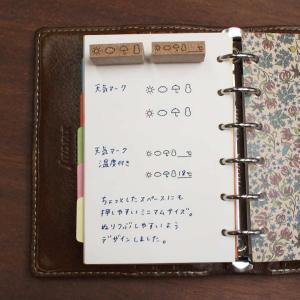 天気マーク
天気マーク
温度付き
℃
18℃
ちょっとしたスペースにも
押しやすいミニマムサイズ。
ぬりつぶしやすいよう
デザインしました。